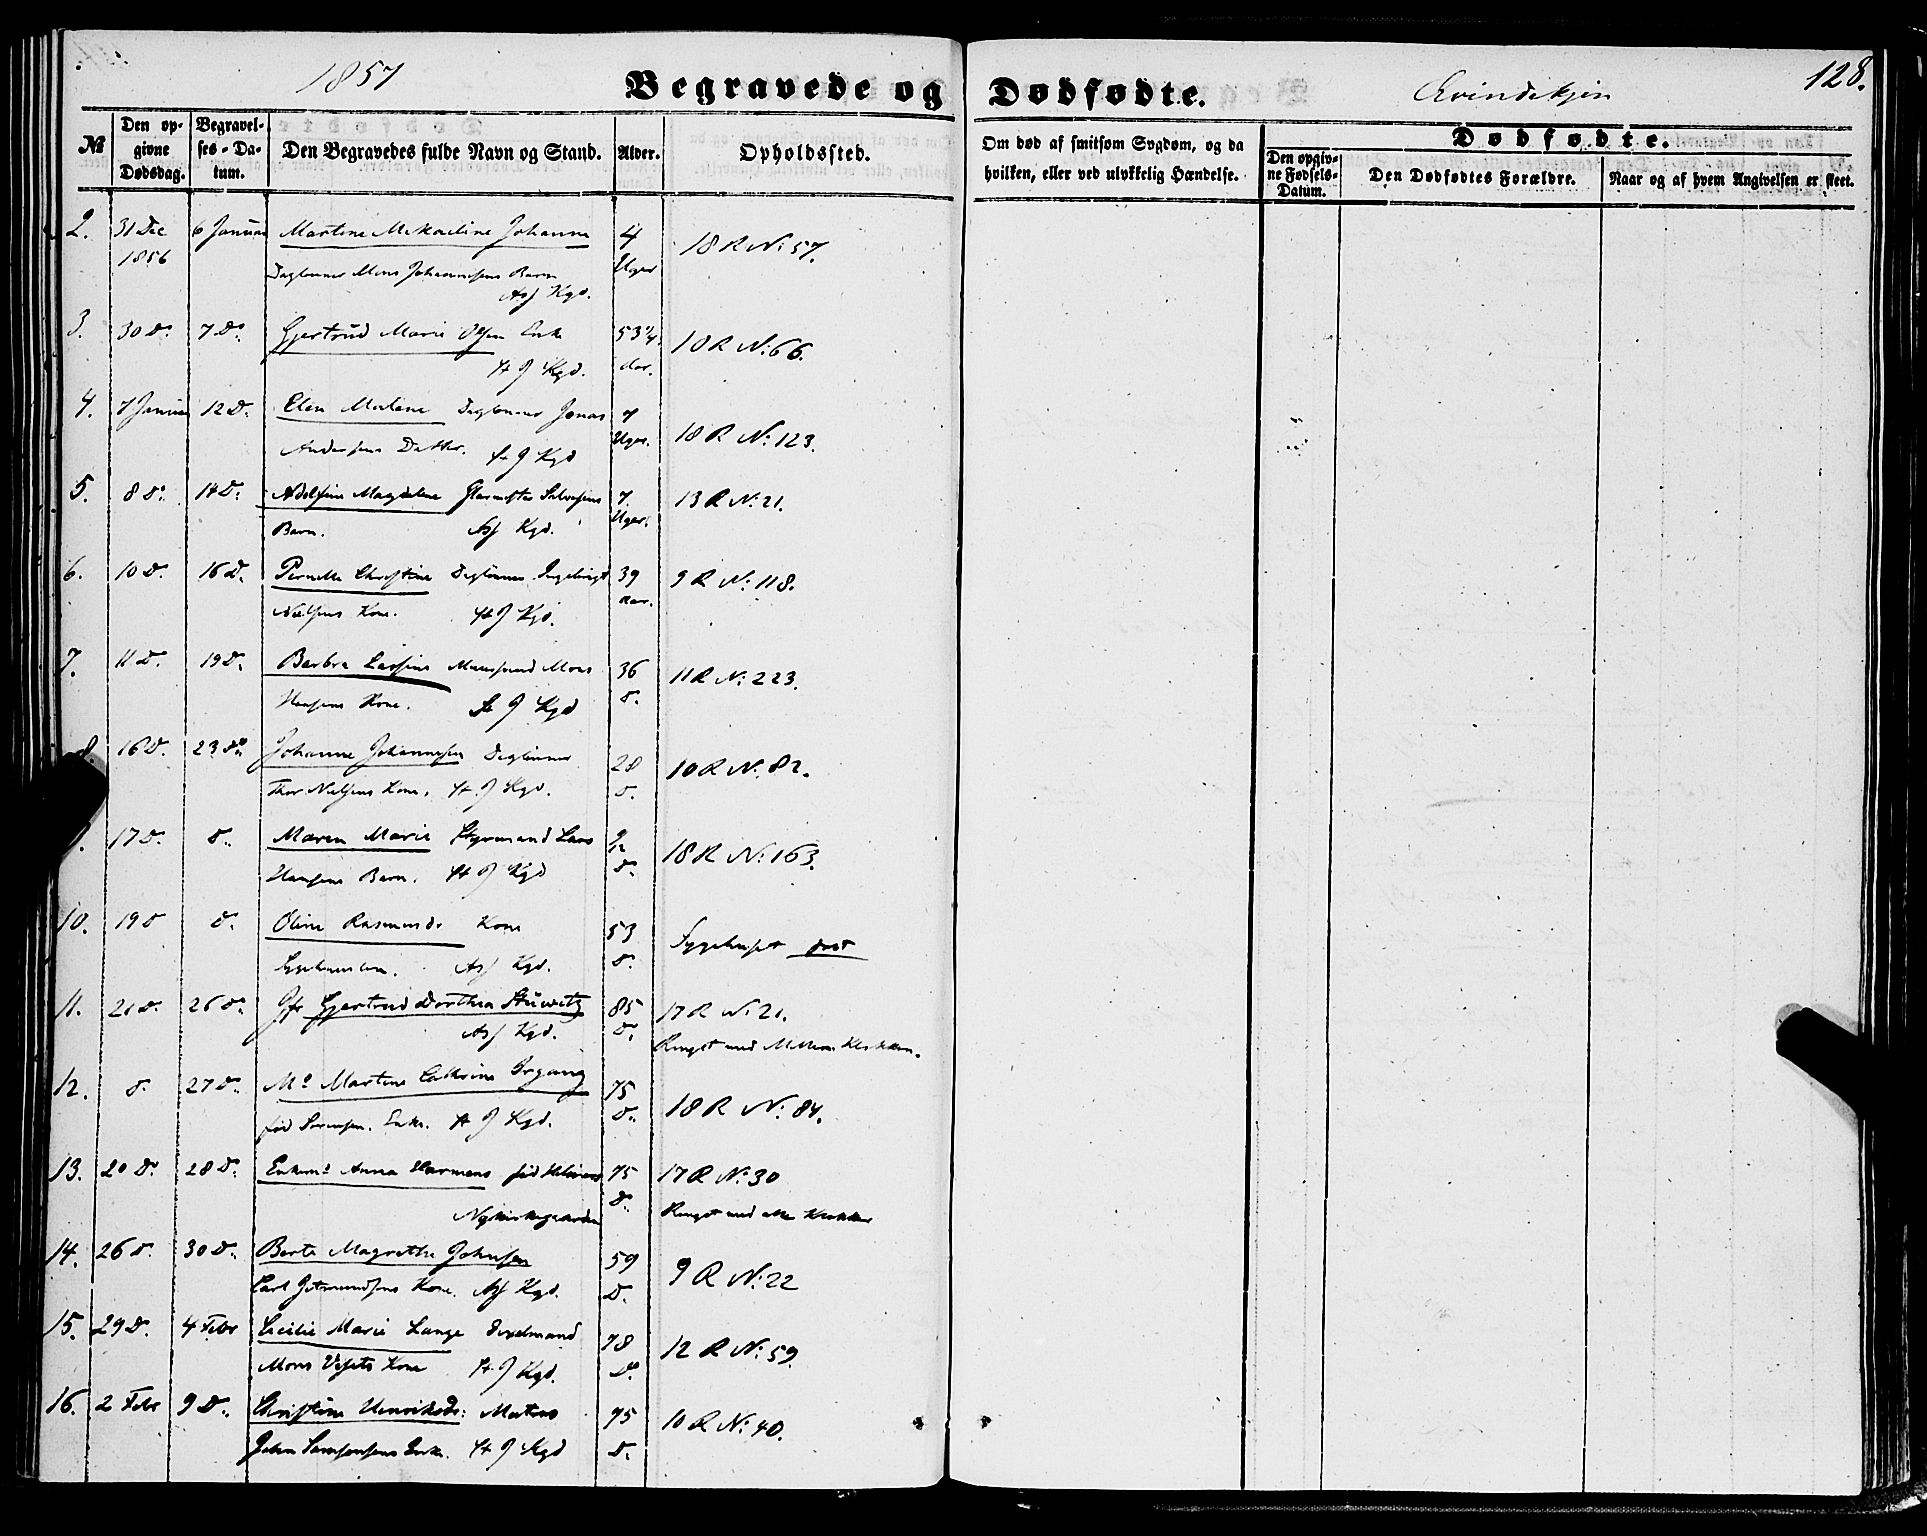 1857 Begravede og Dødfødte. Qvindekjøn 128.
№ Den opgivne Dødsdag. Begravelses-Datum. Den Begravedes fulde Navn og Stand. Alder. Opholdssted. Om død af smitsom Sygdom, og da hvilken, eller ved ulykkelig Hændelse. Dødfødte. Den opgivne Fødsels-Datum. Den Dødfødtes Forældre. Naar og af hvem Angivelsen er skeet.
2. 31 Dec 6 Januar Martine Mekaeline Johanne 4 18 R N: 57.
1856 Daglønner Mons Johannesens Barn Uger
Asf Kgd.
3. 30 D: 7 D: Gjertrud Marie Olsen Enke 53 1/4 10 R N: 66.
St J Kgd. Aar.
4. 7 Januar 12 D: Elen Malene Daglønner Jonas 7 18 R N: 123.
Andersens Datter. St J Kgd Uger.
5. 8 D: 14 D: Adolfine Magdalene Glarmester 7 13 R N: 21.
Barn. Asf Kgd. Uger.
6. 10 D. 16 D. Pernelle Christine Daglønner Ingebrigt 39 9 R N: 118.
Nielsens Kone. St J Kgd. Aar.
7. 11 D. 19 D. Barbra Mons 36 11 R N: 223.
Hansens Kone. St J Kgd D.
8. 16 D. 23 D: Johanne Johannesen Daglønner 28 10 R N: 82.
Thor Nielsens Kone. St J Kgd. D.
17 D. D. Maren Marie Styrmand Lars 18 R N: 163.
Hansens Barn. St J Kgd D.
10. 19 D D. Oline Rasmusd: Kone 53 Sygehuset
Asf Kgd. D.
11. 21 D. 26 D: Jfr Gjertrud Dorthea Stuwitz 85 17 R N: 21.
Asf Kgd. D. Ringet med Mellem Klokken.
12. D. 27 D. Md Martine Cathrine Irgang 75 18 R N: 84.
fød Sørensen. Enke. St J Kgd. D.
13. 20 D. 28 D. Enkemd Anna Harmens fød 75 17 R N: 30
Nykirkegaarden D. Ringet med alle Klokker
14. 26 D. 30 D. Berte Magrethe Johnsen 59 9 R N: 22
Carl Kone. Asf Kgd. D.
15. 29 D. 4 Febr Cecilie Marie Lange 78 12 R N: 59.
Mons Kone St J Kgd. D.
16. 2 Febr 9 D. Christine Henriksd: Matros 75 10 R N: 40.
John Enke. St J Kgd D.